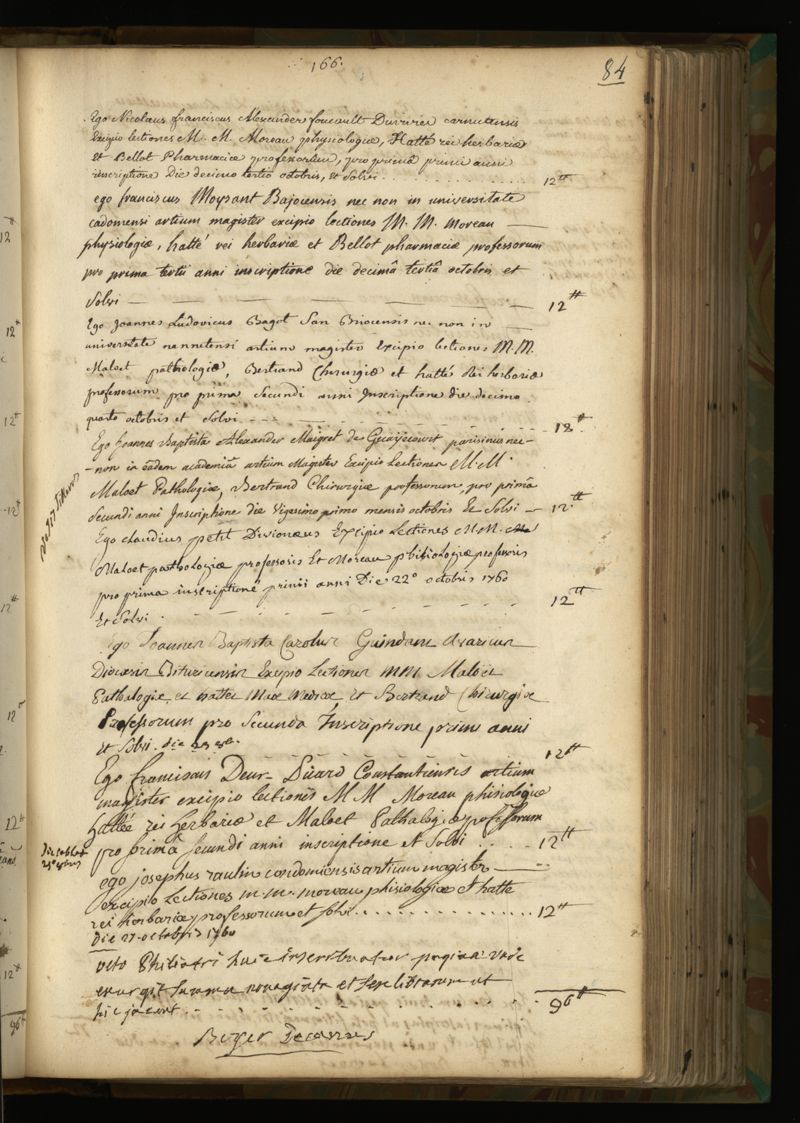 166.
84
Ego Nicolaus franciscus Alexander foucault Duvivier carnutensis
Excipio lectiones M. M. Moreau physiologiæ, Hatté rei herbariæ
et Bellot Pharmaciæ professorum, pro primâ primi anni
inscriptione Die decimo tertio octobris, et solvi . . . . . . 12 tt
ego franciscus Moysant Bajocensis nec non in universitate
cadomensi artium magister excipio lectiones M. M. Moreau
physiologiæ, hatté rei herbariæ et Bellot pharmaciæ professorum
pro prima tertii anni inscriptione die decimâ tertiâ octobris et
solvi 12 tt
Ego Joannes Ludovicus Bagot San Briocensis nec non in
universitate nannetensi artium magister Excipio lectiones M. M.
Maloet pathologiæ, Bertrand Chirurgiæ et hatté Rei herbariæ
professorum pro prima secundi anni Inscriptione die decimo
quarto octobris et solvi 12 tt
Ego Joannes Baptista Alexander Maigret de parisinus nec
non in eâdem academiâ artium Magister Excipio Lectiones M. M.
Maloet Pathologiæ, Bertrand Chirurgiæ professorum, pro primâ
secundi anni Inscriptione die Vigesimo primo mensis octobris Et solvi 12 tt
Ego claudius petit Divionæus Excipio Lectiones M. M.
Maloet pathologiæ professoris Et Moreau phisiologiæ professoris
pro prima inscriptione primi anni Die 22º octobris 1760
Et solvi 12 tt
Ego Joannes Baptista Carolus Avaricus
Diocesis Bituricensis Excipio Lectiones MM Maloët
Pathologiæ et hattée Medicæ, et Bertrand Chirurgiæ
Professorum pro secunda Inscriptione primi anni
et solvi. die 12 tt
Ego franciscus Constantiensis artium
magister excipio lectiones M M Moreau phisiologiæ
hattée rei herbariæ et Maloet Pathalogiæ professorum
pro primâ secundi anni inscriptione et solvi . . . 12 tt
ego josephus raulin condomiensis artium magister
excipio Lectiones m. m. moreau phisiologiæ et hatte
rei herbariæ professorum et solvi . . . . . . 12 tt
die 27 octobris 1760
octo Philiatri huic inscribuntur paginæ unde
exurgit summa nonaginta et sex librarum ut
hic jacent . . . . . . 96 tt
Boyer Decanus